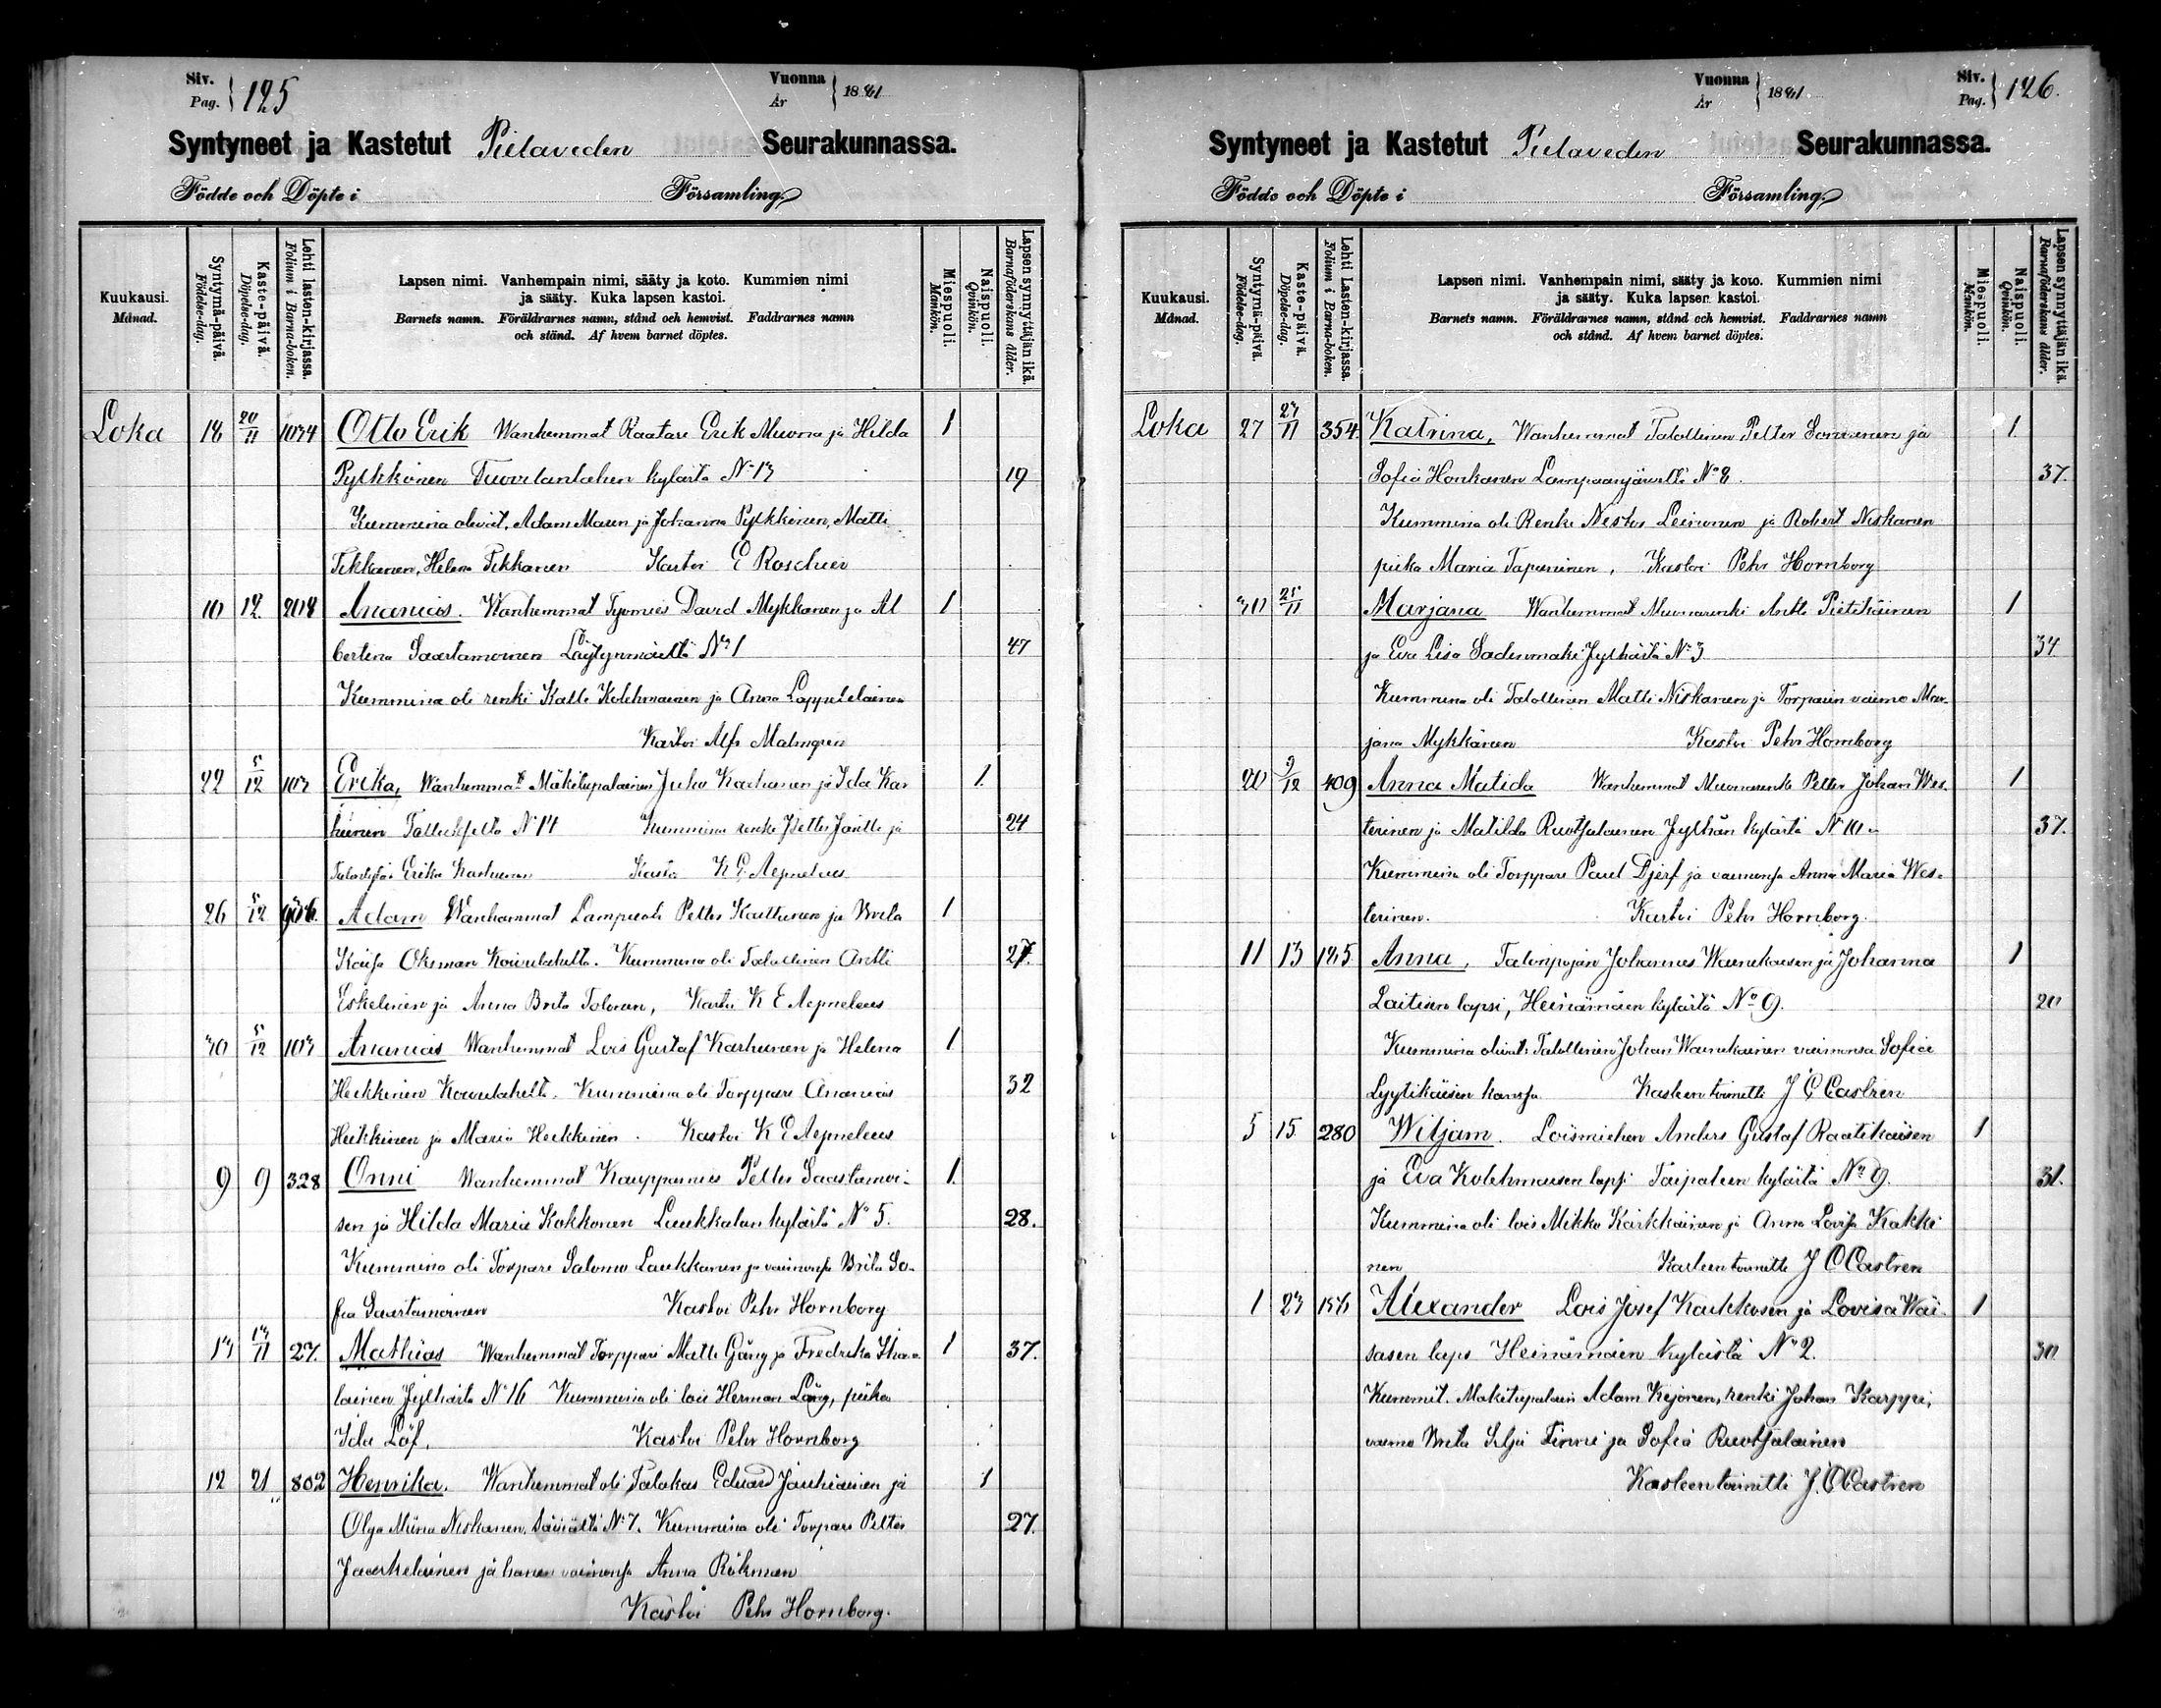 Siv. Pag. 125 Vuonna År 1881
Syntyneet ja Kastetut Pielaveden Seurakunnassa.
Födde och Döpte i Församling.
Kuukausi. Månad. Syntymä-päivä. Födelse-dag. Kaste-päivä. Döpelse-dag. Lehti lasten-kirjassa. Folium i Barna-boken. Lapsen nimi. Vanhempain nimi, sääty ja koto. Kummien nimi ja sääty. Kuka lapsen kastoi. Barnets namn. Föräldrarnes namn, stånd och hemvist. Faddrarnes namn och stånd. Af hvem barnet döptes. Miespuoli. Mankön. Naispuoli. Qvinkön. Lapsen synnyttäjän ikä. Barnaföderskans ålder.
Loka 18 20/11 1034 Otto Erik Wanhemmat Raatari Erik Muona ja Hilda 1
Pylkkönen Tuovilanlahen kylästä No 13 19
Kummina olivat, Adam Masen ja Johanna Pylkkönen, Matti
Tikkanen, Helena Tikkanen Kastoi E Roschier
10 12 208 Ananias. Wanhemmat Työmies David Mykkänen ja Al 1
bertina Saastamoinen Löytynmäeltä No 1 47
Kummina oli renki Kalle Kolehmainen ja Anna Lappeteläinen
Kastoi Alfr Malmgren
22 5/12 103 Erika, Wanhemmat Mäkitupalainen Juho Karhunen ja Ida Kar 1.
hunen No 14 Kummina renki Petter Jäntti ja 24
Erika Karhunen Kastoi K E Aejmelaeus
26 5/12 Adam Wanhemmat Lampuoti Petter Karttunen ja Brita 1
Kaisa Oksman Koivulahelta. Kummina oli Talollinen Antti 27.
Eskelinen ja Anna Brita Tolonen, Kastoi K E Aejmelaeus
30 5/12 103 Ananias Wanhemmat Lois Gustaf Karhunen ja Helena 1
Heikkinen Koivulahelta. Kummina oli Torppari Ananias 32
Heikkinen ja Maria Heikkinen. Kastoi K E Aejmelaeus
9 9 328 Onni Wanhemmat Kauppamies Petter Saastamoi- 1.
sen ja Hilda Maria Kokkonen Laukkalan kylästä No 5. 28.
Kummina oli Torpari Salomo Laukkanen ja vaimonsa Brita So-
fia Saastamoinen Kastoi Pehr Hornborg
13 13/11 27. Mathias Wanhemmat Torppari Matti Gång ja Fredrika 1 37.
lainen Jylhästä No 16 Kummina oli lois Herman Lång, piika
Ida Löf. Kastoi Pehr Hornborg
12 21 802 Henrika. Wanhemmat oli Talakas Eduard Jauhiainen ja 1
Olga Miina Niskanen, Säviältä No 7. Kummina oli Torpari Petter 27.
Jääskeläinen ja hänen vaimonsa Anna Rökman
Kastoi Pehr Hornborg.
Vuonna År 1881 Siv. Pag. 126.
Syntyneet ja Kastetut Pielaveden Seurakunnassa.
Födde och Döpte i Församling.
Kuukausi. Månad. Syntymä-päivä. Födelse-dag. Kaste-päivä. Döpelse-dag. Lehti Lasten-kirjassa. Folium i Barna-boken. Lapsen nimi. Vanhempain nimi, sääty ja koto. Kummien nimi ja sääty. Kuka lapsen kastoi. Barnets namn. Föräldrarnes namn, stånd och hemvist. Faddrarnes namn och stånd. Af hvem barnet döptes. Miespuoli. Mankön. Naispuoli. Qvinkön. Lapsen synnyttäjän ikä. Barnaföderskans ålder.
Loka 27 27/11 354. Katrina, Wanhemmat Talollinen Petter Sormunen ja 1.
Sofia Honkanen Lampaanjärveltä No 8. 37.
Kummina oli Renki Nestor Leinonen ja Robert Niskanen
piika Maria Tapaninen, Kastoi Pehr Hornborg
30 25/11 Marjana Wanhemmat Muonarenki Antti Pietikäinen 1
ja Eva Lisa Sadinmäki Jylhästä No 3 34
Kummina oli Talollinen Matti Niskanen ja Torparin vaimo Mar-
jana Mykkänen Kastoi Pehr Hornborg
20 9/12 409 Anna Matida Wanhemmat Muonarenki Petter Johan Wes- 1
terinen ja Matilda Ruotsalainen Jylhän kylästä No 10. 37.
Kummina oli Torppari Paul Djerf ja vaimonsa Anna Maria Wes-
terinen. Kastoi Pehr Hornborg.
11 13 185 Anna, Talonpojan Johannes Wainikaisen ja Johanna 1
Laitisen lapsi, Heinämäen kylästä No 9. 20
Kummina olivat: Talollinen Johan Wainikainen vaimonsa Sofia
Lyytikäisen kanssa Kasteen toimitti J C Castren
5 15 280 Wiljam. Loismiehen Anders Gustaf Raatikaisen 1
ja Eva Kolehmaisen lapsi Taipaleen kylästä No 9. 31.
Kummina oli lois Mikko Kärkkäinen ja Anna Lovisa Kakki
nen Kasteen toimitti J C Castren
1 23 Alexander Lois Josef Kaikkosen ja Lovisa Wäi- 1
säsen laps Heinämäen kylästä No 2. 30
Kummit. Mäkitupalain Adam Kejonen, renki Johan Karppi,
vaimo Brita Silja Tinni ja Sofia Ruotsalainen
Kasteen toimitti J. C Castren